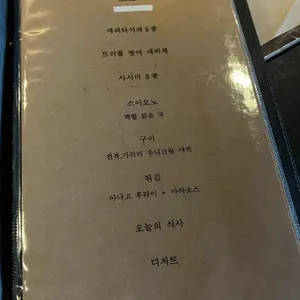 에피타이져 3 종
트러플 방어 세비체
사시미 3 종
스이모노
백합 맑은 국
구이
전복,가리비 우니크림 야끼
튀김
아나고 후라이 + 마라소스
오늘의 식사
디저트